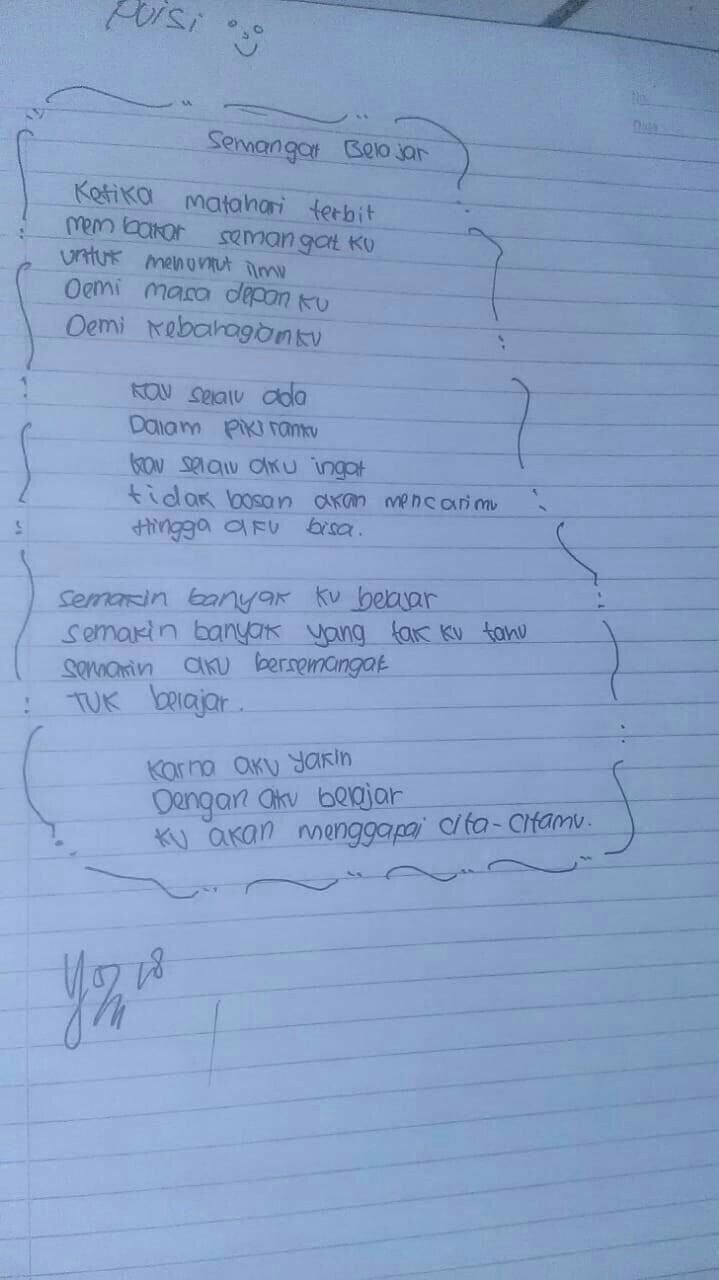 Puisi
Semangat Belajar
Ketika matahari terbit
membakar semangatku
untuk menuntut ilmu
Demi masa depanku
Demi kebahagianku
Kau selalu ada
Dalam pikiranku
Kau selalu aku ingat
tidak bosan akan mencarimu
Hingga aku bisa.
Semakin banyak ku belajar
Semakin banyak yang tak ku tahu
Semakin aku bersemangat
TUK belajar.
Karna aku yakin
Dengan aku belajar
Ku akan menggapai cita-citamu.